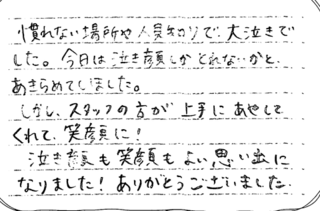 慣れない場所や人見知りで、大泣きで
した。今日は泣き顔しかとれないかと、
あきらめてしました。
しかし、スタッフの方が上手にあやして
くれて、笑顔に！
泣き顔も笑顔もよい思い出に
なりました！ありがとうございました。